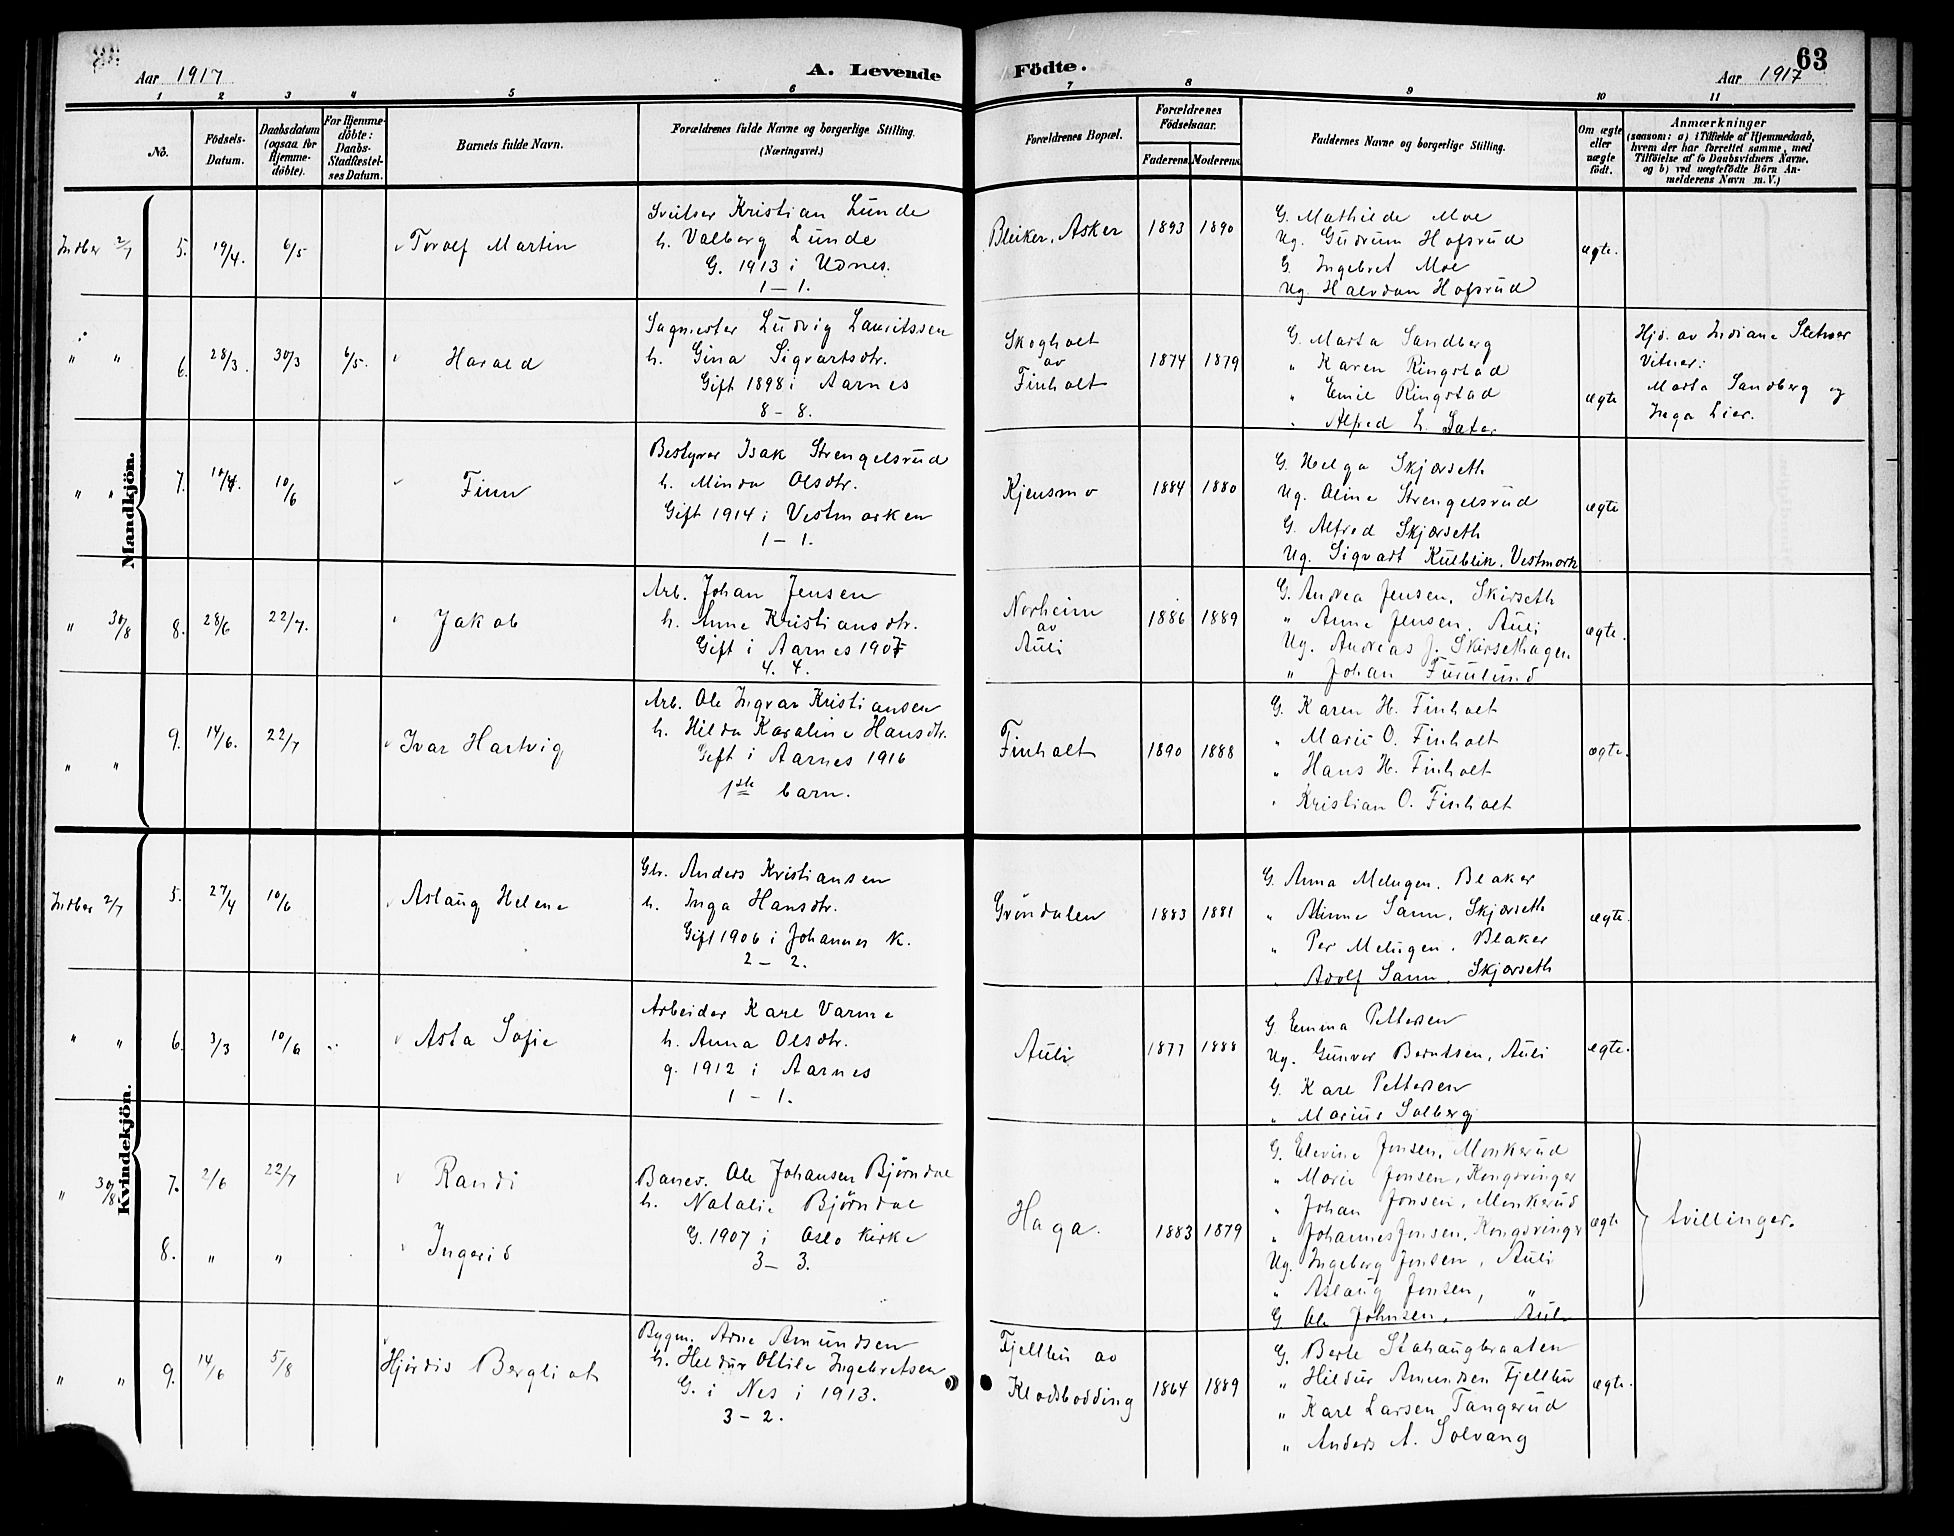 63
Aar 1917
A. Levende Födte.
Aar 1917
1 2 3 4 5 6 7 8 9 10 11
No.
Födsels-
Datum.
Daabsdatum
(ogsaa for
Hjemme-
döbte).
For Hjemme-
döbte:
Daabs-
Stadfæstel-
ses Datum.
Barnets fulde Navn.
Forældrenes fulde Navne og borgerlige Stilling.
(Næringsvei.)
Forældrenes Bopæl.
Forældrenes
Födselsaar.
Faderens. Moderens.
Faddernes Navne og borgerlige Stilling.
Om ægte
eller
uægte
födt.
Anmærkninger
(saasom: a) i Tilfælde af Hjemmedaab,
hvem der har forrettet samme, med
Tilföielse af to Daabsvidners Navne.
og b) ved uægtefödte Börn An-
melderens Navn m. V.)
Mandkjön.
Indber 2/7 5. 19/4. 6/5 Torolf Martin
Sveitser Kristian Lunde
h. Valborg Lunde
G. 1913 i Udnes.
1 – 1.
Bleiker, Asker 1893 1890
G. Mathilde Moe
Ug. Gudrun Hofsrud
G. Ingebret Moe
Ug. Halvdan Hofsrud
ægte.
" " 6. 28/3. 30/3 6/5. Harald
Sagmester Ludvig Lauritssen
h. Gina Sigvartsdtr.
Gift 1898 i Aarnes
8 – 8.
Skogholt
av
Finholt
1874 1879
G. Marta Sandberg
" Karen Ringstad
" Emil Ringstad
" Alfred L. Sater
ægte
Hjd. av Indiane
Vitner:
Marta Sandberg og
Inga Lier.
" " 7. 10/4. 10/6 Finn
Bestyrer Isak Strengelsrud
h. Minda Olsdtr.
Gift 1914 i Vestmarken
1 – 1.
Kjensmo 1884 1880
G. Helga Skjørseth
Ug. Oline Strengelsrud
G. Alfred Skjørseth
Ug. Sigvart Kulblik, Vestmark
ægte
" 30/8 8. 28/6 22/7. Jakob
Arb. Johan Jensen
h. Anne Kristiansdtr.
Gift i Aarnes 1907
4. 4.
Norheim
av
Auli
1886 1889
G. Andrea Jensen, Skirseth
" Anne Jensen, Auli
Ug. Andreas J. Skirsethagen
" Johan Furulund
ægte.
" " 9. 14/6. 22/7 Ivar Hartvig
Arb. Ole Ingvar Kristiansen
h. Hilda Karoline Hansdtr.
Gift i Aarnes 1916
1ste barn.
Finholt 1890 1888
G. Karen H. Finholt
" Marie O. Finholt
" Hans H. Finholt
" Kristian O. Finholt
ægte.
Kvindekjön.
Indber 2/7 5. 27/4 10/6 Aslaug Helene
Gb. Anders Kristiansen
h. Inga Hansdtr.
Gift 1906 i Johannes K.
2 – 2.
Gröndalen 1883 1881
G. Anna Melngen, Blaker
" Minne Sann, Skjørseth
" Per Melngen, Blaker
" Adolf Sann, Skjørseth
ægte.
" " 6. 3/3 10/6 Asta Sofie
Arbeider Karl Varme
h. Anna Olsdtr.
g. 1912 i Aarnes
1 – 1.
Auli 1877 1888
G. Emma Pettersen
Ug. Gunvor Berntsen, Auli
G. Karl Pettersen
" Marius Solberg
ægte.
" 30/8 7. 2/6 22/7 Randi
8. " " Ingerid
Banev. Ole Johansen Björndal
h. Natalie Björndal
G. 1907 i Oslo Kirke
3 – 3.
Haga. 1883 1879
G. Elevine Jonsen, Monkerud
" Marie Jonsen, Kongsvinger
" Johan Jonsen, Monkerud
" Johannes Jonsen, Kongsvinger
Ug. Ingeborg Jonsen, Auli
" Aslaug Jonsen, "
G Ole Johnsen, Auli
ægte
tvillinger.
" " 9. 14/6 5/8 Hjördis Bergliot
Bygm. Arne Amundsen
h. Heldur Ottilie Ingebretsen
G. i Nes i 1913.
3 – 2.
Fjellhu av
Klodsbodding
1864 1889
G. Berte Stahaugbraaten
" Hildur Amundsen Fjellhu
" Karl Larsen Tangerud
" Anders A. Solvang
ægte.